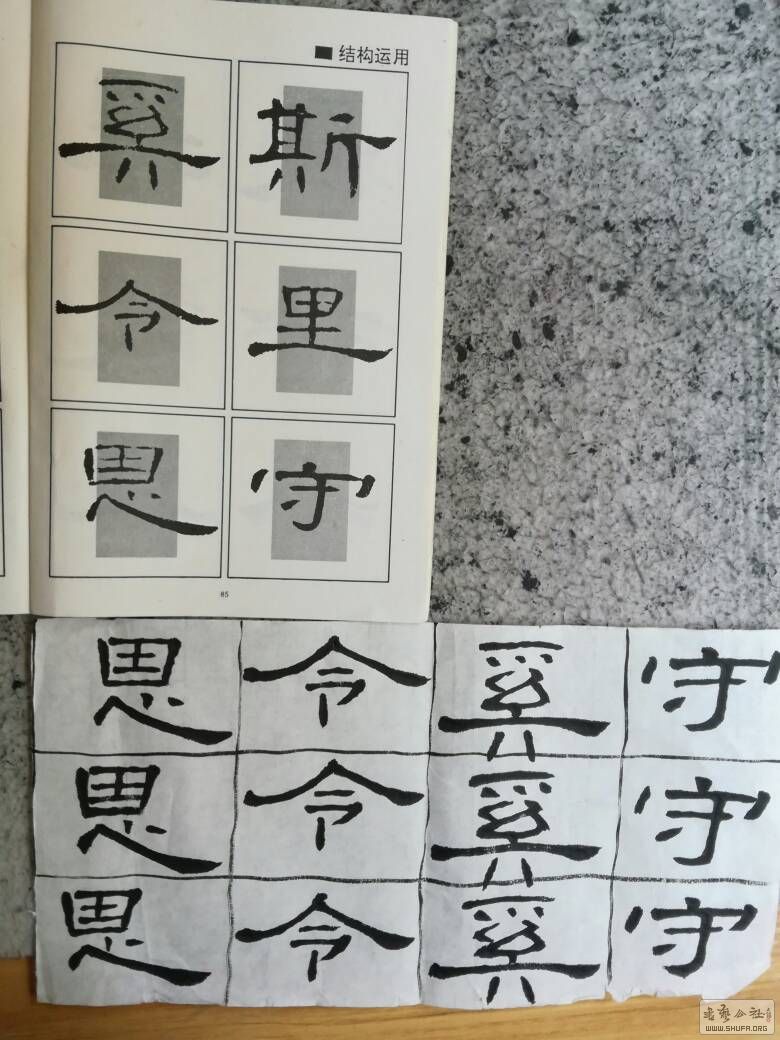 ■ 结构运用
奚 斯
令 里
思 守
85
思 令 奚 守
思 令 奚 守
思 令 奚 守
书艺公社
WWW.SHUFA.ORG